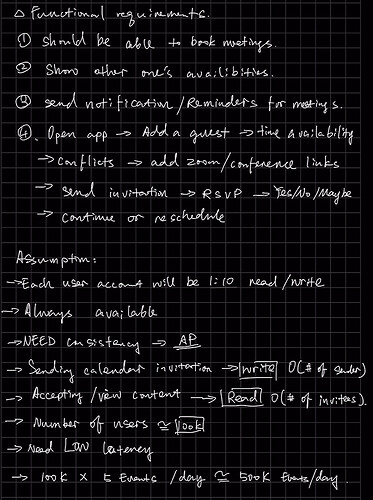 △ Functional requirements.
① Should be able to book meetings.
② Show other one's availibities.
③ send notification/Reminders for meetings.
④. Open app → Add a guest → time availability
→ conflicts → add zoom/conference links
→ Send invitation → RSVP → Yes/No/Maybe
→ continue or reschedule
Assumption:
→ Each user account will be 1:10 read/write
→ Always available
→ NEED consistency → AP
→ Sending calendar invitation → write O(# of sender)
→ Accepting/view content → Read O(# of invitees).
→ Number of users ≅ 100k
→ Need Low latency
→ 100k × 5 Events /day ≅ 500k Events/day.